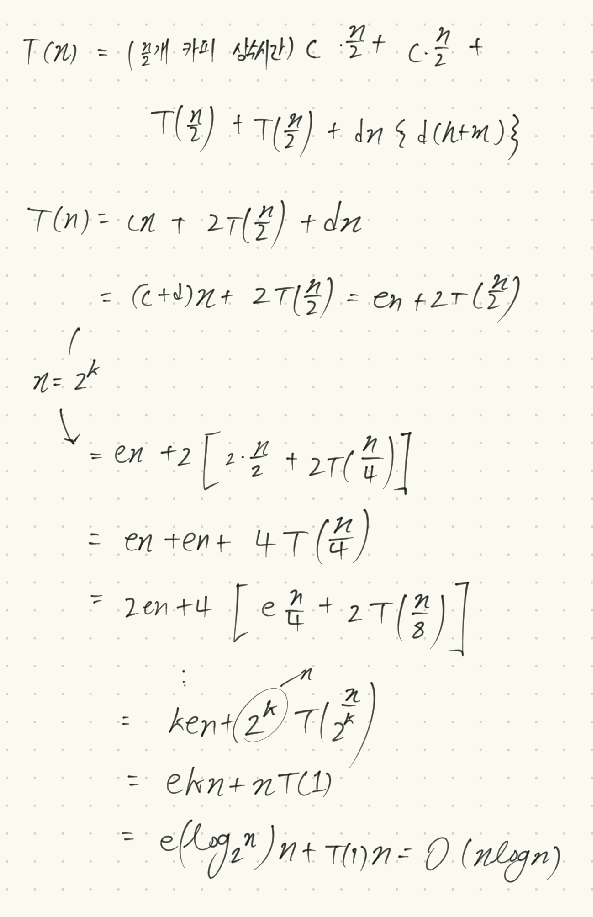 T(n) = (n/2개 카피 상수시간) c · n/2 + c · n/2 +
T(n/2) + T(n/2) + dn { d(h+m) }
T(n) = cn + 2T(n/2) + dn
= (c+d)n + 2T(n/2) = en + 2T(n/2)
n = 2^k
= en + 2 [ 2 · n/2 + 2T(n/4) ]
= en + en + 4T(n/4)
= 2en + 4 [ e n/4 + 2T(n/8) ]
⋮ n
= ken + 2^k T(n/2^k)
= ekn + nT(1)
= e(log₂n)n + T(1)n = O(nlogn)